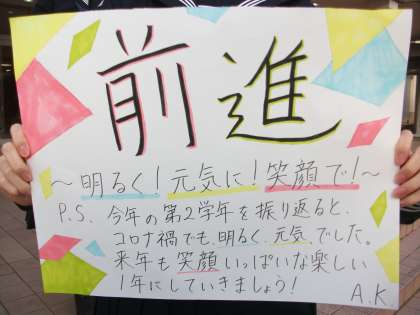 前進
～明るく！元気に！笑顔で！～
P.S. 今年の第2学年を振り返ると、
コロナ禍でも、明るく、元気、でした。
来年も笑顔いっぱいな楽しい
1年にしていきましょう！
A.K.